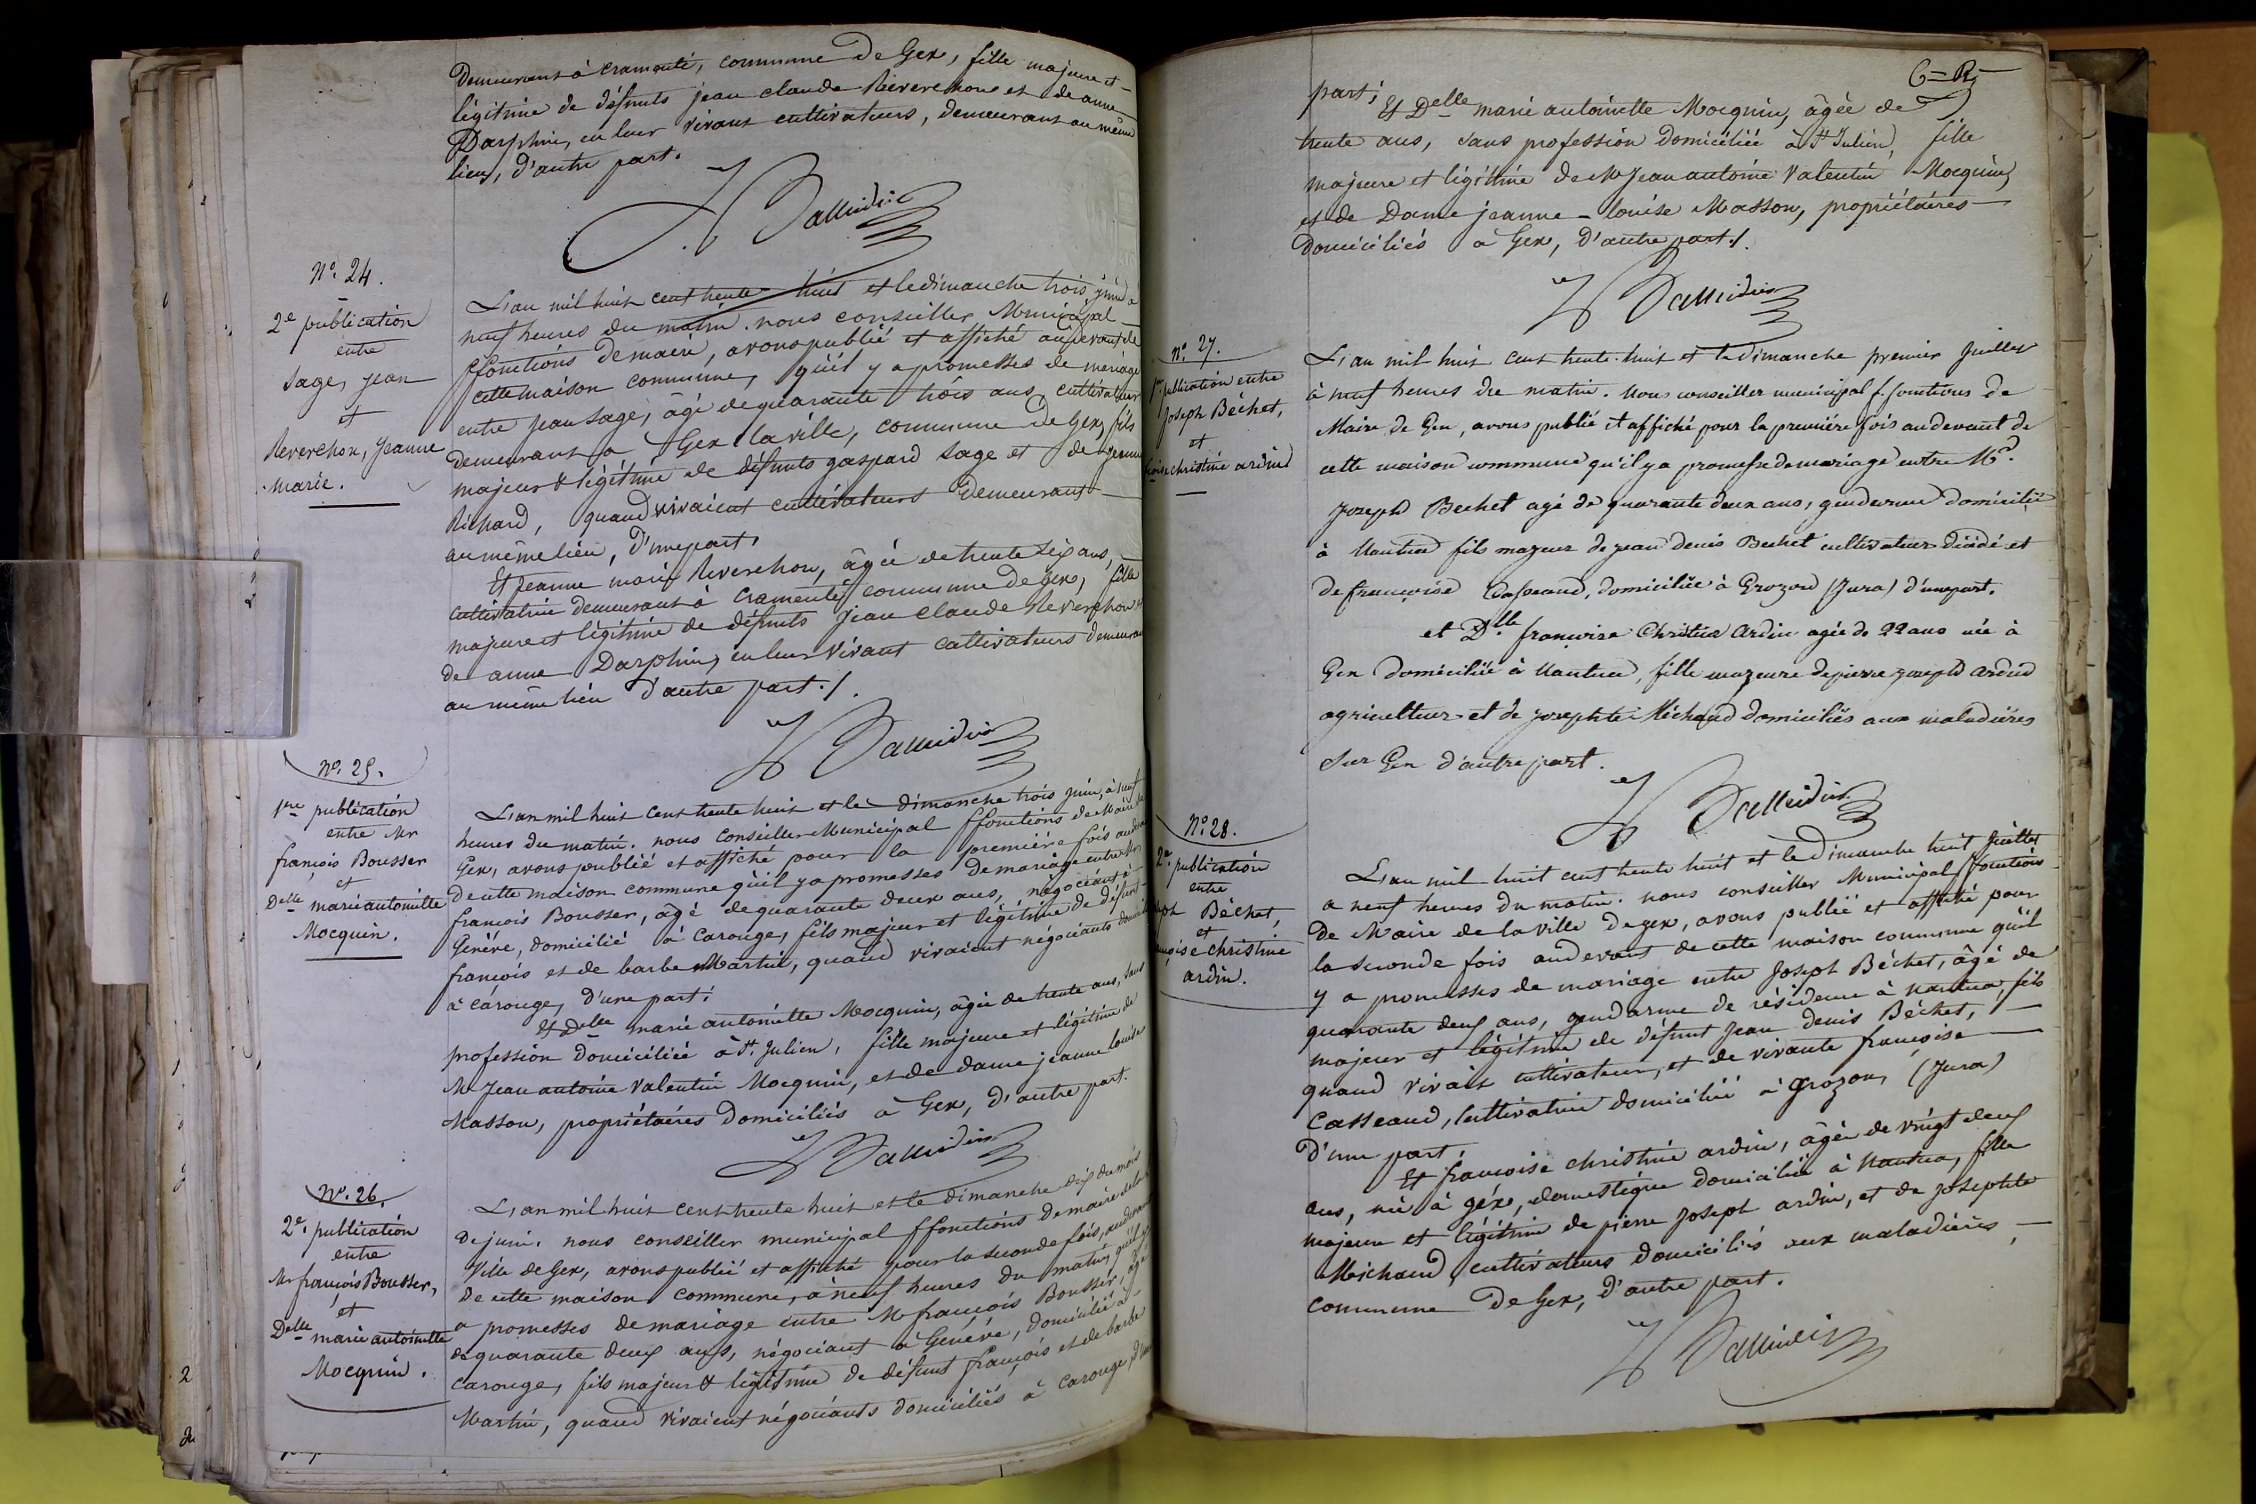 Demeurant à cramonté, commune De Gex, fille majeure et
légitime de défunts jean claude Reverchon et de anne
Darphin, en leur vivant cultivateurs, demeurant au même
lieu, d'autre part.
N° 24.
2e publication
entre
Sage, jean
et
Reverchon, Jeanne
marie.
L'an mil huit cent trente huit et le dimanche trois juin à
neuf heures du matin. nous conseiller Municipal
ffonctions de maire, avons publié et affiché au devant de
cette maison commune, qu'il y a promesses de mariage
entre jean Sage, âgé de quarante trois ans, cultivateur
demeurant à Gex la ville, commune de Gex, fils
majeur & légitime de défunts gaspard Sage et de jeanne
Richard, quand vivaient cultivateurs Demeurant
au même lieu, d'une part,
Et Jeanne marie Reverchon, âgée de trente six ans,
cultivatrice demeurant à cramonté commune De Gex, fille
majeure et légitime de défunts jean claude Reverchon &
de anne Darphin, en leur vivant cultivateurs demeurant
au même lieu d'autre part./.
N° 25.
1re publication
entre Mr
françois Bousser
et
Delle marie antoinette
Mocquin.
L'an mil huit cent trente huit et le dimanche trois juin, à neuf
heures du matin. nous conseiller Municipal ffonctions de Maire de
Gex, avons publié et affiché pour la première fois au devant
De cette maison commune qu'il y a promesses de mariage entre Mr
françois Bousser, âgé de quarante deux ans, négociant à
Genève, domicilié à Carouge, fils majeur et légitime de défunt
françois et de barbe Martin, quand vivaient négociants
à carouge, d'une part;
Et Delle marie antoinette Mocquin, âgée de trente ans, sans
profession domiciliée à St. Julien, fille majeure et légitime de
Mr Jean antoine Valentin Mocquin, et de dame jeanne louise
Masson, propriétaires domiciliés à Gex, d'autre part.
N° 26.
2e. publication
entre
Mr françois Bousser,
et
Delle marie antoinette
Mocquin.
L'an mil huit cent trente huit et le dimanche dix du mois
De juin. nous conseiller municipal ffonctions de maire de la
Ville de Gex, avons publié et affiché pour la seconde fois, au devant
De cette maison commune, à neuf heures du matin, qu'il y
a promesses de mariage entre Mr françois Bousser, âgé
de quarante deux ans, négociant à Genève, domicilié à
Carouge, fils majeur & légitime de défunt françois et de barbe
Martin, quand vivaient négociants domiciliés à Carouge, d'une
part;
Et Delle marie antoinette Mocquin, âgée de
trente ans, sans profession domiciliée à St Julien, fille
majeure et légitime de Mr Jean antoine Valentin Mocquin,
et de Dame jeanne-louise Masson, propriétaires
domiciliés à Gex, d'autre part./.
n° 27.
publication entre
Joseph Béchet,
et
christine ardin
L'an mil huit cent trente-huit et le dimanche premier Juillet
à neuf heures du matin. Nous conseiller municipal f. fonctions de
Maire de Gex, avons publié et affiché pour la première fois au devant de
cette maison commune qu'il y a promesse de mariage entre Mr
Joseph Bechet agé de quarante deux ans, gendarme domicilié
à Nantua fils majeur de jean denis Bechet cultivateur décédé et
de françoise Casseaud, domiciliée à Grozon (Jura) d'une part.
et Dlle françoise Christine ardin agée de 22 ans née à
Gex domiciliée à Nantua, fille majeure de pierre joseph ardin
agriculteur et de josephte Michaud domiciliés aux maladières
sur Gex d'autre part.
N° 28.
2e publication
entre
Béchet,
et
christine
ardin.
L'an mil huit cent trente huit et le dimanche huit juillet
a neuf heures du matin. nous conseiller Municipal ffonctions
De Maire de la ville de gex, avons publié et affiché pour
la seconde fois au devant de cette maison commune qu'il
y a promesses de mariage entre Joseph Béchet, âgé de
quarante deux ans, gendarme de résidence à Nantua, fils
majeur et légitime de défunt Jean denis Béchet,
quand vivait cultivateur, et de vivante françoise
Casseaud, cultivatrice domiciliée à Grozon, (Jura)
d'une part,
Et françoise christine ardin, âgée de vingt deux
ans, née à gex, domestique domiciliée à Nantua, fille
majeure et légitime de pierre Joseph ardin, et de josephte
Michaud, cultivateurs domiciliés aux maladières,
commune De Gex, d'autre part.